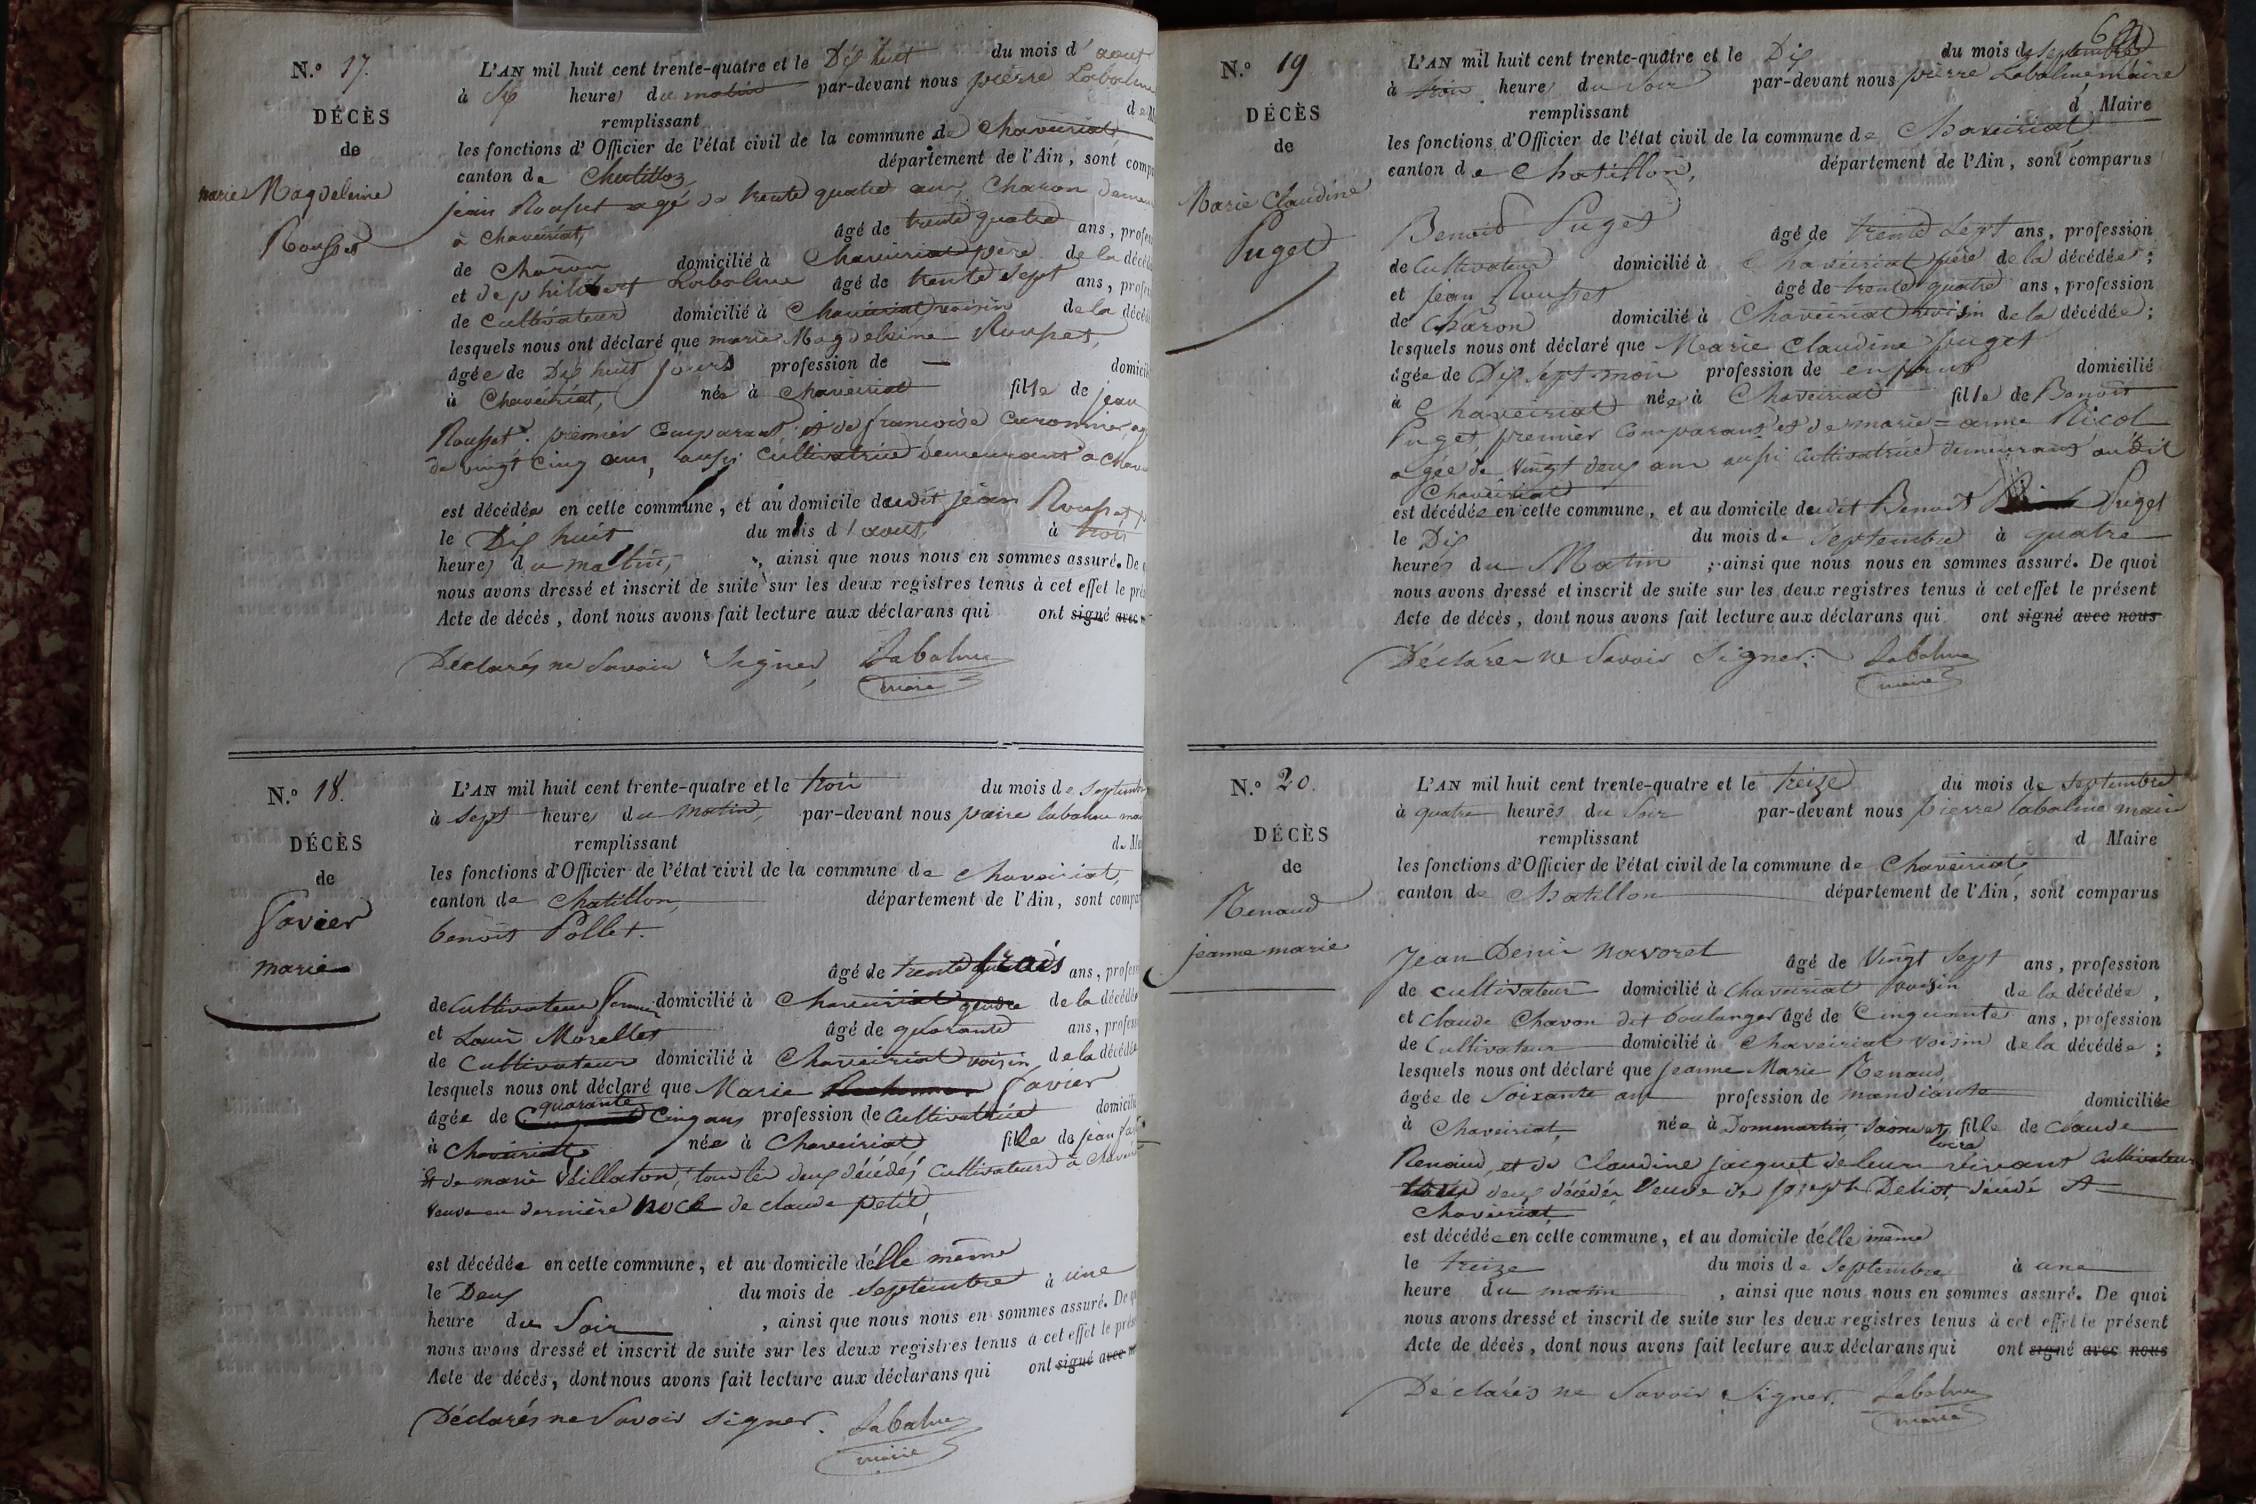 N.° 17.
DÉCÈS
de
marie Magdeleine
Rousset
L'AN mil huit cent trente-quatre et le Dix huit du mois d'aout
à six heures du matin par-devant nous pierre Labalme
remplissant
les fonctions d'Officier de l'état civil de la commune de Chaveiriat
canton de Chatillon département de l'Ain, sont
jean Rousset agé de trente quatre ans, Charon
à chaveiriat, âgé de trente quatre ans,
de Charon domicilié à Chaveiriat père de la
et de philibert Labalme âgé de trente sept ans,
de cultivateur domicilié à Chaveiriat voisin de la
lesquels nous ont déclaré que marie Magdeleine Rousset,
âgée de Dix huit jours profession de —
à Chaveiriat, née à Chaveiriat fille de jean
Rousset premier Comparant et de francoise
de vingt cinq ans, aussi cultivatrice demeurant à
est décédée en cette commune, et au domicile dudit jean Rousset
le Dix huit du mois d'aout à trois
heures du matin, ainsi que nous nous en sommes assuré. De
nous avons dressé et inscrit de suite sur les deux registres tenus à cet effet le
Acte de décès, dont nous avons fait lecture aux déclarans qui ont signé avec
Déclarés ne Savoir Signer, Labalme
maire
N.° 18.
DÉCÈS
de
Favier
marie
L'AN mil huit cent trente-quatre et le trois du mois de Septembre
à sept heures du Matin, par-devant nous labalme
remplissant
les fonctions d'Officier de l'état civil de la commune de chaveiriat,
canton de Chatillon, département de l'Ain, sont
benoit Pollet.
âgé de trente trois ans,
de Cultivateur domicilié à Chaveiriat gendre de la décédée
et Louis Morellet âgé de quarante ans,
de Cultivateur domicilié à Chaveiriat voisin de la décédée
lesquels nous ont déclaré que Marie Favier
âgée de quarante Cinq ans profession de Cultivatrice
à Chaveiriat née à Chaveiriat, fille de jean
et de marie Veillaton, tous les deux décédés, Cultivateurs à
Veuve en dernière noce de claude petit,
est décédée en cette commune, et au domicile d'elle même
le Deux du mois de septembre à une
heure du Soir, ainsi que nous nous en sommes assuré. De
nous avons dressé et inscrit de suite sur les deux registres tenus à cet effet le
Acte de décès, dont nous avons fait lecture aux déclarans qui ont signé avec
Déclarés ne Savoir signer. Labalme
maire
N.° 19
DÉCÈS
de
Marie Claudine
Puget
L'AN mil huit cent trente-quatre et le Dix du mois de septembre
à trois heures du Soir par-devant nous pierre Labalme maire
remplissant d Maire
les fonctions d'Officier de l'état civil de la commune de Chaveiriat
canton de Chatillon, département de l'Ain, sont comparus
Benoit Puget
âgé de trente Sept ans, profession
de Cultivateur domicilié à Chaveiriat père de la décédée;
et jean Rousset âgé de trente quatre ans, profession
de Charon domicilié à Chaveiriat voisin de la décédée;
lesquels nous ont déclaré que Marie Claudine puget
âgée de Dix sept mois profession de domicilié
à Chaveiriat née à Chaveiriat fille de Benoit
Puget premier Comparant et de marie=anne Nicol
agée de Vingt deux ans aussi Cultivatrice demeurant audit
Chaveiriat
est décédée en cette commune, et au domicile dudit Benoit Puget
le Dix du mois de Septembre à quatre
heures du Matin; ainsi que nous nous en sommes assuré. De quoi
nous avons dressé et inscrit de suite sur les deux registres tenus à cet effet le présent
Acte de décès, dont nous avons fait lecture aux déclarans qui ont signé avec nous
Déclarer ne Savoir Signer. Labalme
maire
N.° 20.
DÉCÈS
de
Renaud
jeanne marie
L'AN mil huit cent trente-quatre et le treize du mois de septembre
à quatre heures du Soir par-devant nous pierre labalme maire
remplissant d Maire
les fonctions d'Officier de l'état civil de la commune de Chaveiriat
canton de Chatillon département de l'Ain, sont comparus
Jean Denis navoret âgé de Vingt Sept ans, profession
de cultivateur domicilié à Chaveiriat voisin de la décédée,
et claude Chavon dit boulanger âgé de Cinquante ans, profession
de Cultivateur domicilié à Chaveiriat voisin de la décédée;
lesquels nous ont déclaré que jeanne Marie Renaud,
âgée de Soixante ans profession de mandiante domiciliée
à Chaveiriat, née à Dommartin, Saone et loire fille de Claude
Renaud, et de Claudine jacquet de leur vivant Cultivateur
deux décédés Veuve de joseph Deliot, décédé A
Chaveiriat
est décédée en cette commune, et au domicile d'elle même
le treize du mois de Septembre à une
heure du matin, ainsi que nous nous en sommes assuré. De quoi
nous avons dressé et inscrit de suite sur les deux registres tenus à cet effet le présent
Acte de décès, dont nous avons fait lecture aux déclarans qui ont signé avec nous
Déclarés ne Savoir Signer. Labalme
maire